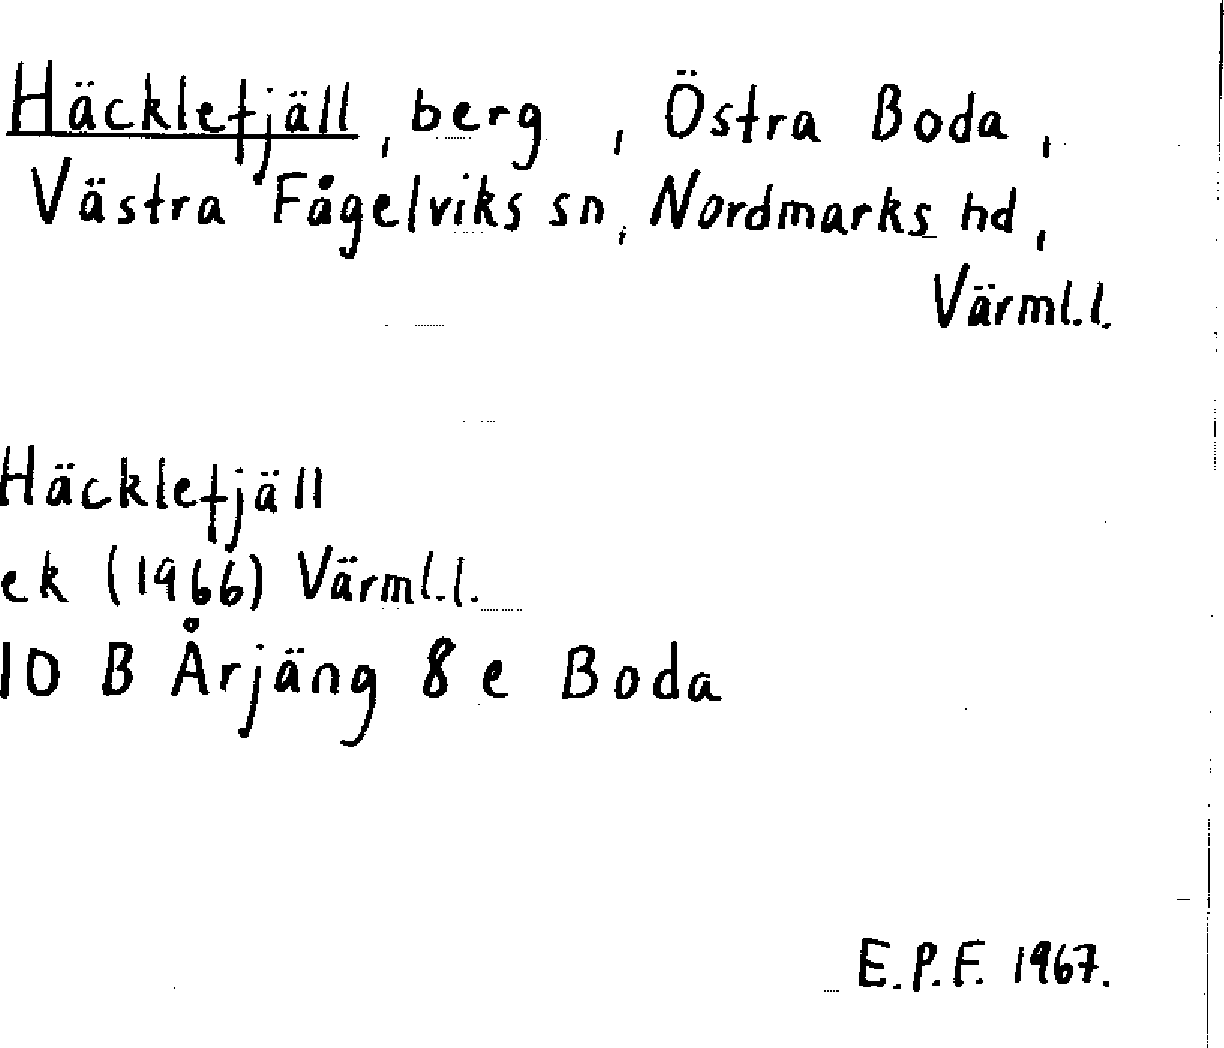 Häcklefjäll, berg, Östra Boda,
Västra Fågelviks sn, Nordmarks hd,
Värml.l.
Häcklefjäll
ek (1966) Värml.l.
10 B Årjäng 8 e Boda
E.P.F. 1967.